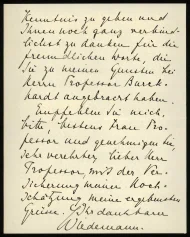 Kenntnis zu geben und
Ihnen noch ganz verbind-
lichst zu danken für die
freundlichen Worte, die
Sie zu meinen Gunsten bei
Herrn Professor Burck-
hardt angebracht haben.
Empfehlen Sie mich,
bitte, bestens Frau Pro-
fessor und genehmigen Sie,
sehr verehrter, lieber Herr
Professor, mit der Ver-
sicherung meiner Hoch-
schätzung meine ergebensten
Grüsse. Ihr dankbarer
Wiedemann.